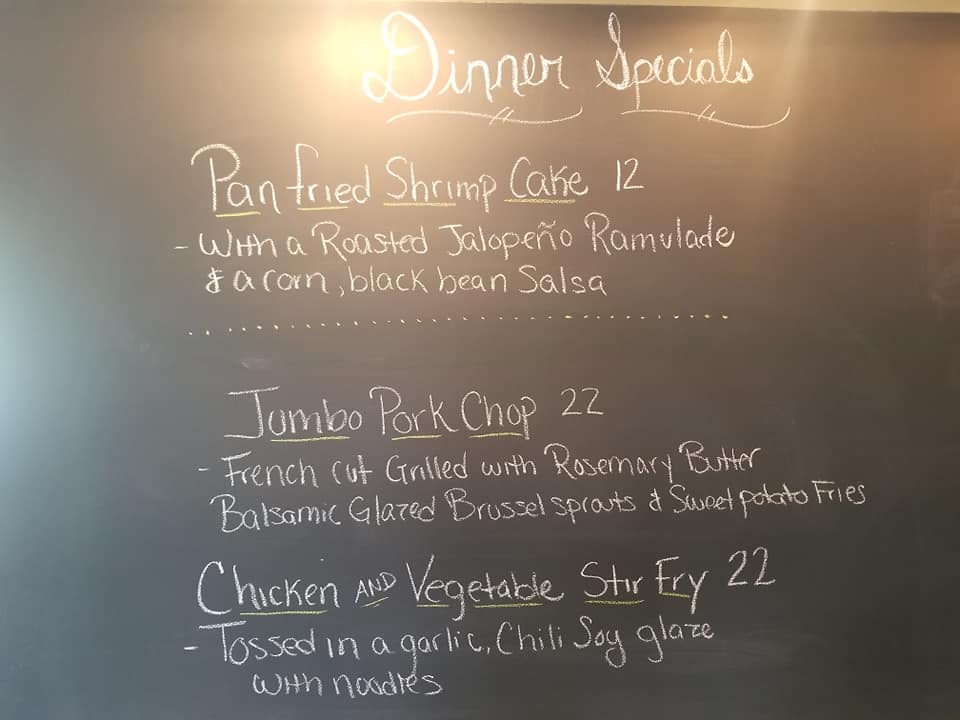 Dinner Specials
Pan fried Shrimp Cake 12
- With a Roasted Jalopeño Ramulade
& a corn, black bean Salsa
Jumbo Pork Chop 22
- French cut Grilled with Rosemary Butter
Balsamic Glazed Brussel sprouts & Sweet potato Fries
Chicken AND Vegetable Stir Fry 22
- Tossed in a garlic, Chili Soy glaze
with noodles